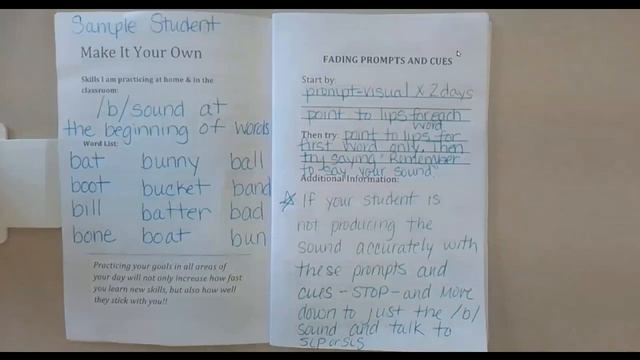 Sample Student
Make It Your Own
Skills I am practicing at home & in the
classroom:
/b/ sound at
the beginning of words
Word List:
bat bunny ball
boot bucket band
bill batter bad
bone boat bun
Practicing your goals in all areas of
your day will not only increase how fast
you learn new skills, but also how well
they stick with you!!
FADING PROMPTS AND CUES
Start by:
prompt-visual x 2 days
point to lips for each
word
Then try: point to lips for
first word only, then
try saying "Remember
to say your sound"
Additional Information:
☆ If your student is
not producing the
sound accurately with
these prompts and
cues - STOP - and move
down to just the /b/
sound and talk to
SLP or SLS